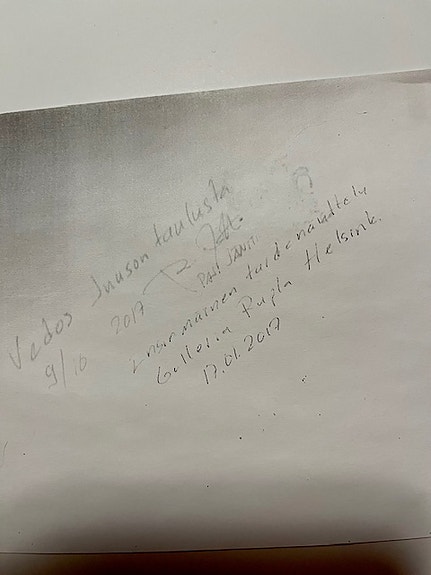 Vedos Inuson taulusta
9/10 2017
PASI JÄNTTI
Ensimmäinen taidenäyttely
Galleria Pupla Helsinki
17.01.2017